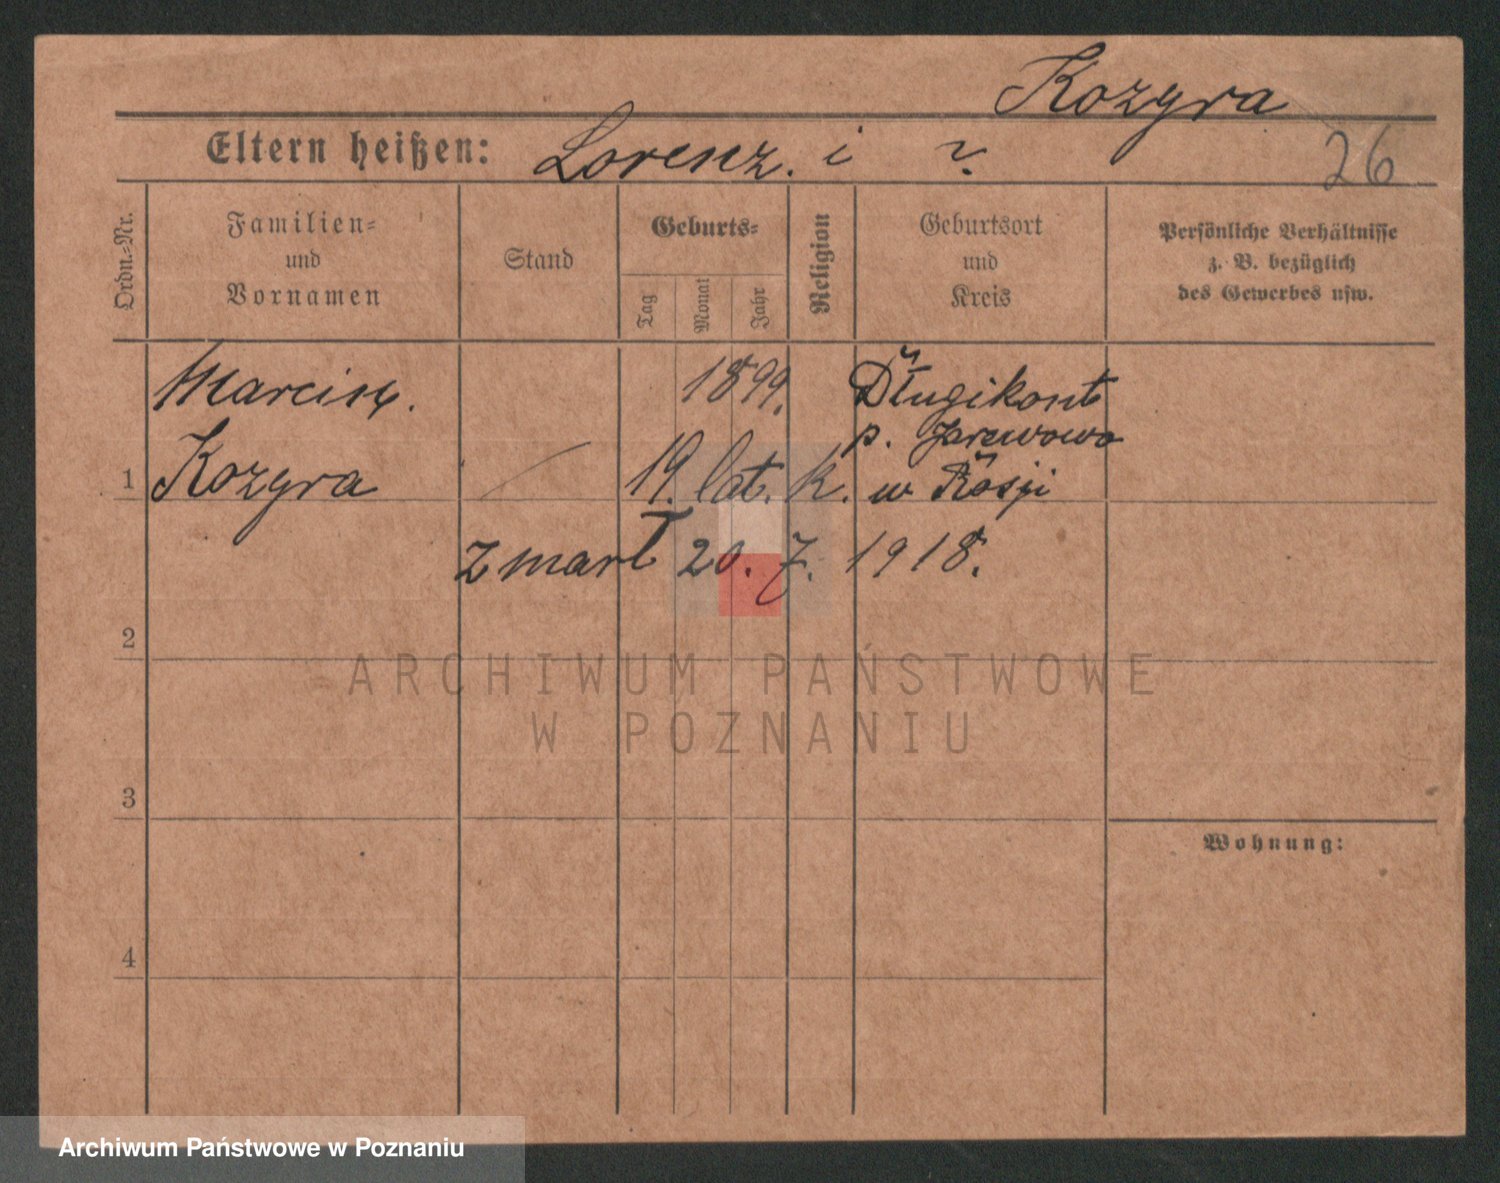 Kozyra
Eltern heißen: Lorenz. i ?
26
Ordn.-Nr.
Familien-
und
Vornamen
Stand
Geburts-
Tag
Monat
Jahr
Religion
Geburtsort
und
Kreis
Persönliche Verhältnisse
z. B. bezüglich
des Gewerbes usw.
Marcin.
1899.
Długikont
p.
1
Kozyra
19. lat. k.
w Rosji
zmarł 20. 7. 1918.
2
ARCHIWUM PAŃSTWOWE
W POZNANIU
3
Wohnung:
4
Archiwum Państwowe w Poznaniu